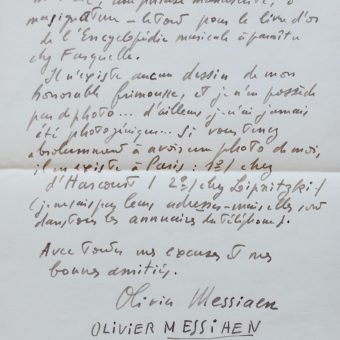 une phrase manuscrite, o
ma signature — le tout pour le livre d'or
de l'Encyclopédie musicale à paraître
chez Fasquelle.
Il n'existe aucun dessin de mon
honorable frimousse, et je n'en possède
pas de photo... d'ailleurs je n'ai jamais
été photogénique... Si vous tenez
absolument à avoir un photo de moi,
il en existe à Paris : 1º/ chez
d'Harcourt / 2º/ chez Lipnitzki /
(je n'ai pas leurs adresses - mais elles sont
dans tous les annuaires du téléphone).
Avec toutes mes excuses et mes
bonnes amitiés.
Olivier Messiaen
OLIVIER MESSIAEN